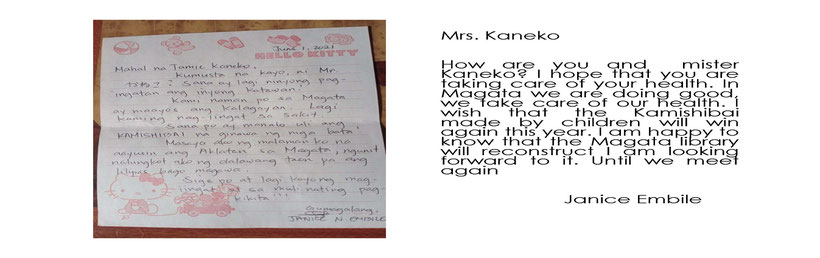 June 1, 2021
HELLO KITTY
Mahal na Tamie Kaneko,
Kumusta na kayo, ni Mr.
? Sana ay lagi ninyong pag-
ingatan ang inyong katawan.
Kami naman po sa Magata
ay maayos ang kalagayan. Lagi
kaming nag-iingat sa sakit
Sana po ay manalo uli ang
KAMISHIBAI na ginawa ng mga bata!
Masaya ako ng malaman ko na
aayusin ang Aklatan sa Magata, ngunit
nalungkot ako ng dalawang taon pa ang
bago magawa.
Sige po at lagi kayong mag-
ingat at sa muli nating pag-
kikita!!!
Gumagalang,
JANICE N. EMBILE
Mrs. Kaneko
How are you and mister
Kaneko? I hope that you are
taking care of your health. In
Magata we are doing good,
we take care of our health. I
wish that the Kamishibai
made by children will win
again this year. I am happy to
know that the Magata library
will reconstruct I am looking
forward to it. Until we meet
again
Janice Embile